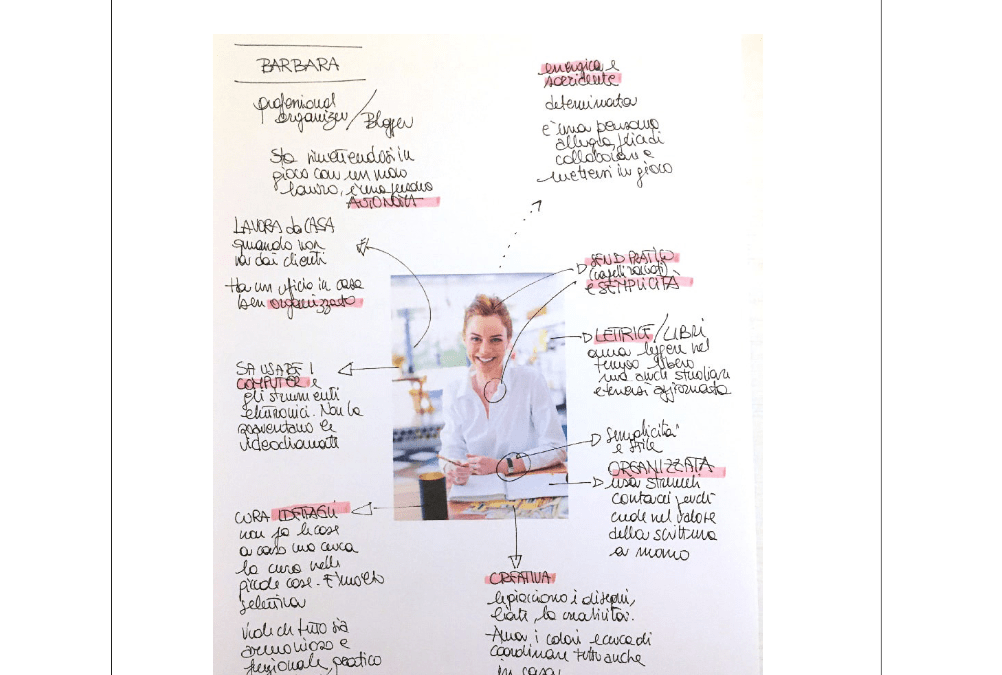 BARBARA
professional
organizer / Blogger
Sta mettendosi in
gioco con un nuovo
lavoro, è una persona
AUTONOMA
LAVORA da CASA
quando non
va dai clienti
Ha un ufficio in casa
ben organizzato
SA USARE I
COMPUTER e
gli strumenti
elettronici. Non la
spaventano le
videochiamate
CURA I DETTAGLI
non fa le cose
a caso ma cerca
la cura nelle
piccole cose. È molto
selettiva
Vuole che tutto sia
armonioso e
funzionale, pratico
energica e
sorridente
determinata
è una persona
allegra, felice di
collaborare e
mettersi in gioco
SENSO PRATICO
(capelli raccolti)
e SEMPLICITÀ
LETTRICE / LIBRI
ama leggere nel
tempo libero
ma anche studiare
e tenersi aggiornata
Semplicità
e stile
ORGANIZZATA
usa strumenti
cartacei perché
crede nel valore
della scrittura
a mano
CREATIVA
le piacciono i disegni,
l'arte, la creatività.
Ama i colori e cerca di
coordinare tutto anche
in casa